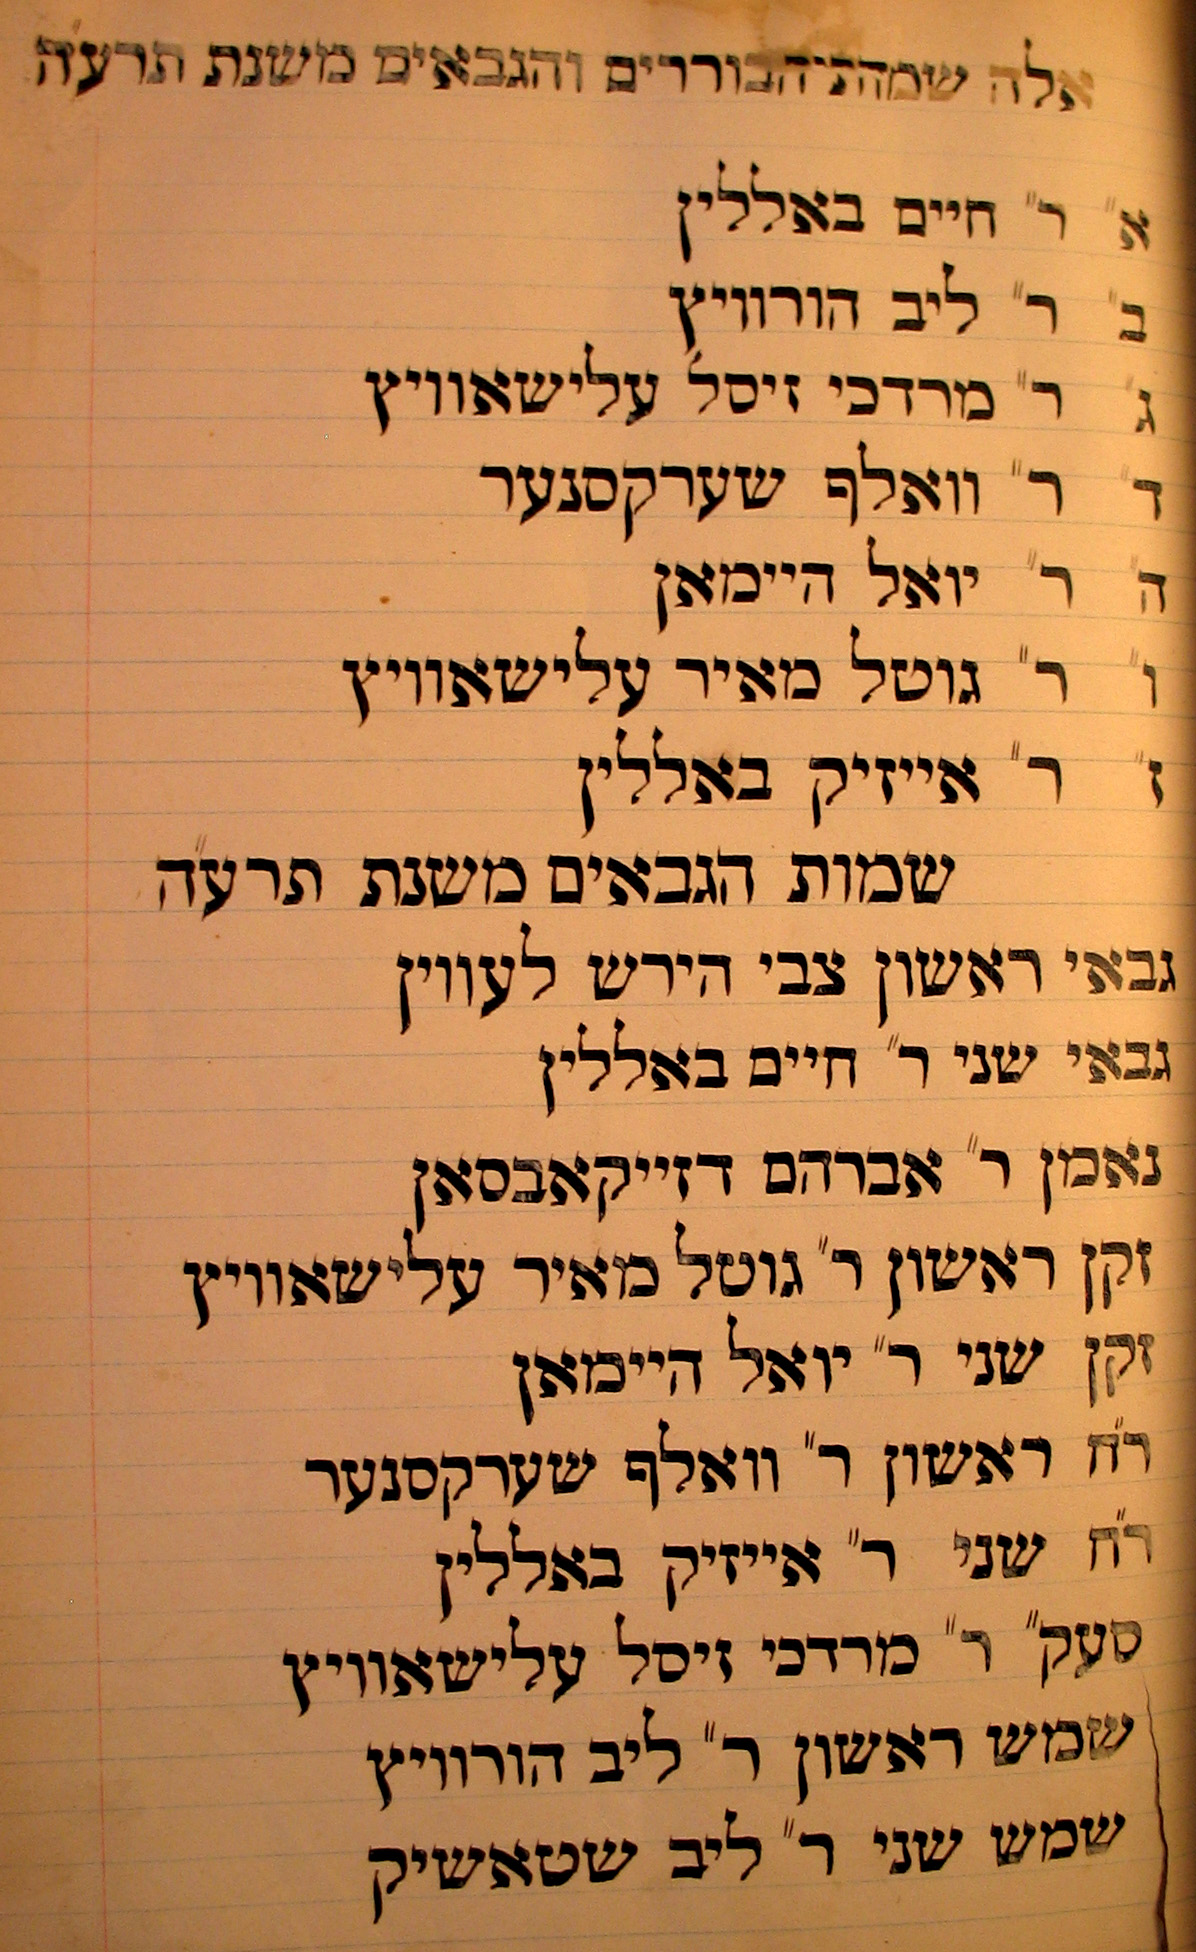 אלה שמהת הבוררים והגבאים משנת תרע״ה
א״ ר״ חיים באללין
ב״ ר״ ליב הורוויץ
ג״ ר״ מרדכי זיסל עלישאוויץ
ד״ ר״ וואלף שערקסנער
ה״ ר״ יואל היימאן
ו״ ר״ גוטל מאיר עלישאוויץ
ז״ ר״ אייזיק באללין
שמות הגבאים משנת תרע״ה
גבאי ראשון צבי הירש לעווין
גבאי שני ר״ חיים באללין
נאמן ר״ אברהם דזייקאבסאן
זקן ראשון ר״ גוטל מאיר עלישאוויץ
זקן שני ר״ יואל היימאן
ר״ח ראשון ר״ וואלף שערקסנער
ר״ח שני ר״ אייזיק באללין
סעק״ ר״ מרדכי זיסל עלישאוויץ
שמש ראשון ר״ ליב הורוויץ
שמש שני ר״ ליב שטאשיק